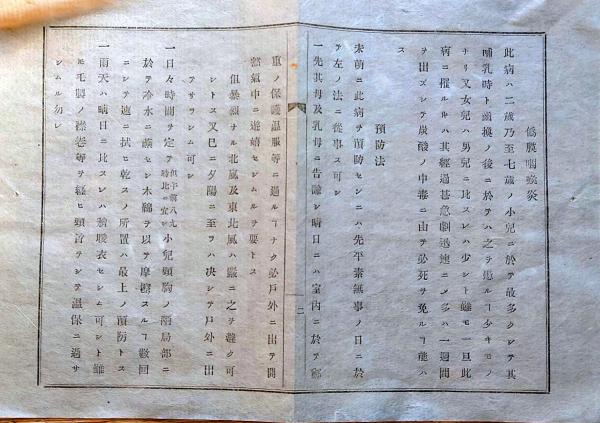 偽膜咽喉炎
此病ハ二歳乃至七歳ノ小兒ニ於テ最多クシテ其
哺乳時ト齒換ノ後ニ於テハ之ヲ患ルヿ少キモノ
ナリ又女兒ハ男兒ニ比スレハ少シト雖モ一旦此
病ニ罹ルトキハ其經過甚急劇迅速ニメ多ハ一週間
ヲ出ズシテ炭酸ノ中毒ニ由テ必死ヲ免ルヿ能ハ
ス
預防法
未前ニ此病ヲ預防センニハ先平素無事ノ日ニ於
テ左ノ法ニ從事ス可シ
一先其母及乳母ニ告諭シ晴日ニハ室内ニ於テ鄭
重ノ保護温服等ニ過ルヿナク必戸外ニ出テ開
豁氣中ニ遊嬉セシムルヲ要トス
但暴烈ナル北風及東北風ハ嚴ニ之ヲ避ク可
シトス又已ニ夕陽ニ至ラハ决シテ戸外ニ出
アサラシム可シ
一日々時間ヲ定テ但午前八九時比ニ宜シ小兒頸胸ノ兩局部ニ
於テ冷水ニ蘸セシ木綿ヲ以テ摩擦スルヿ數回
ニシテ速ニ拭ヒ乾スノ所置ハ最上ノ預防トス
一雨天ハ晴日ニ比スレハ稍暖衣セシム可シト雖
モ毛製ノ襟卷等ヲ纒ヒ頸部ヲシテ温保ニ過サ
シムル勿レ
二